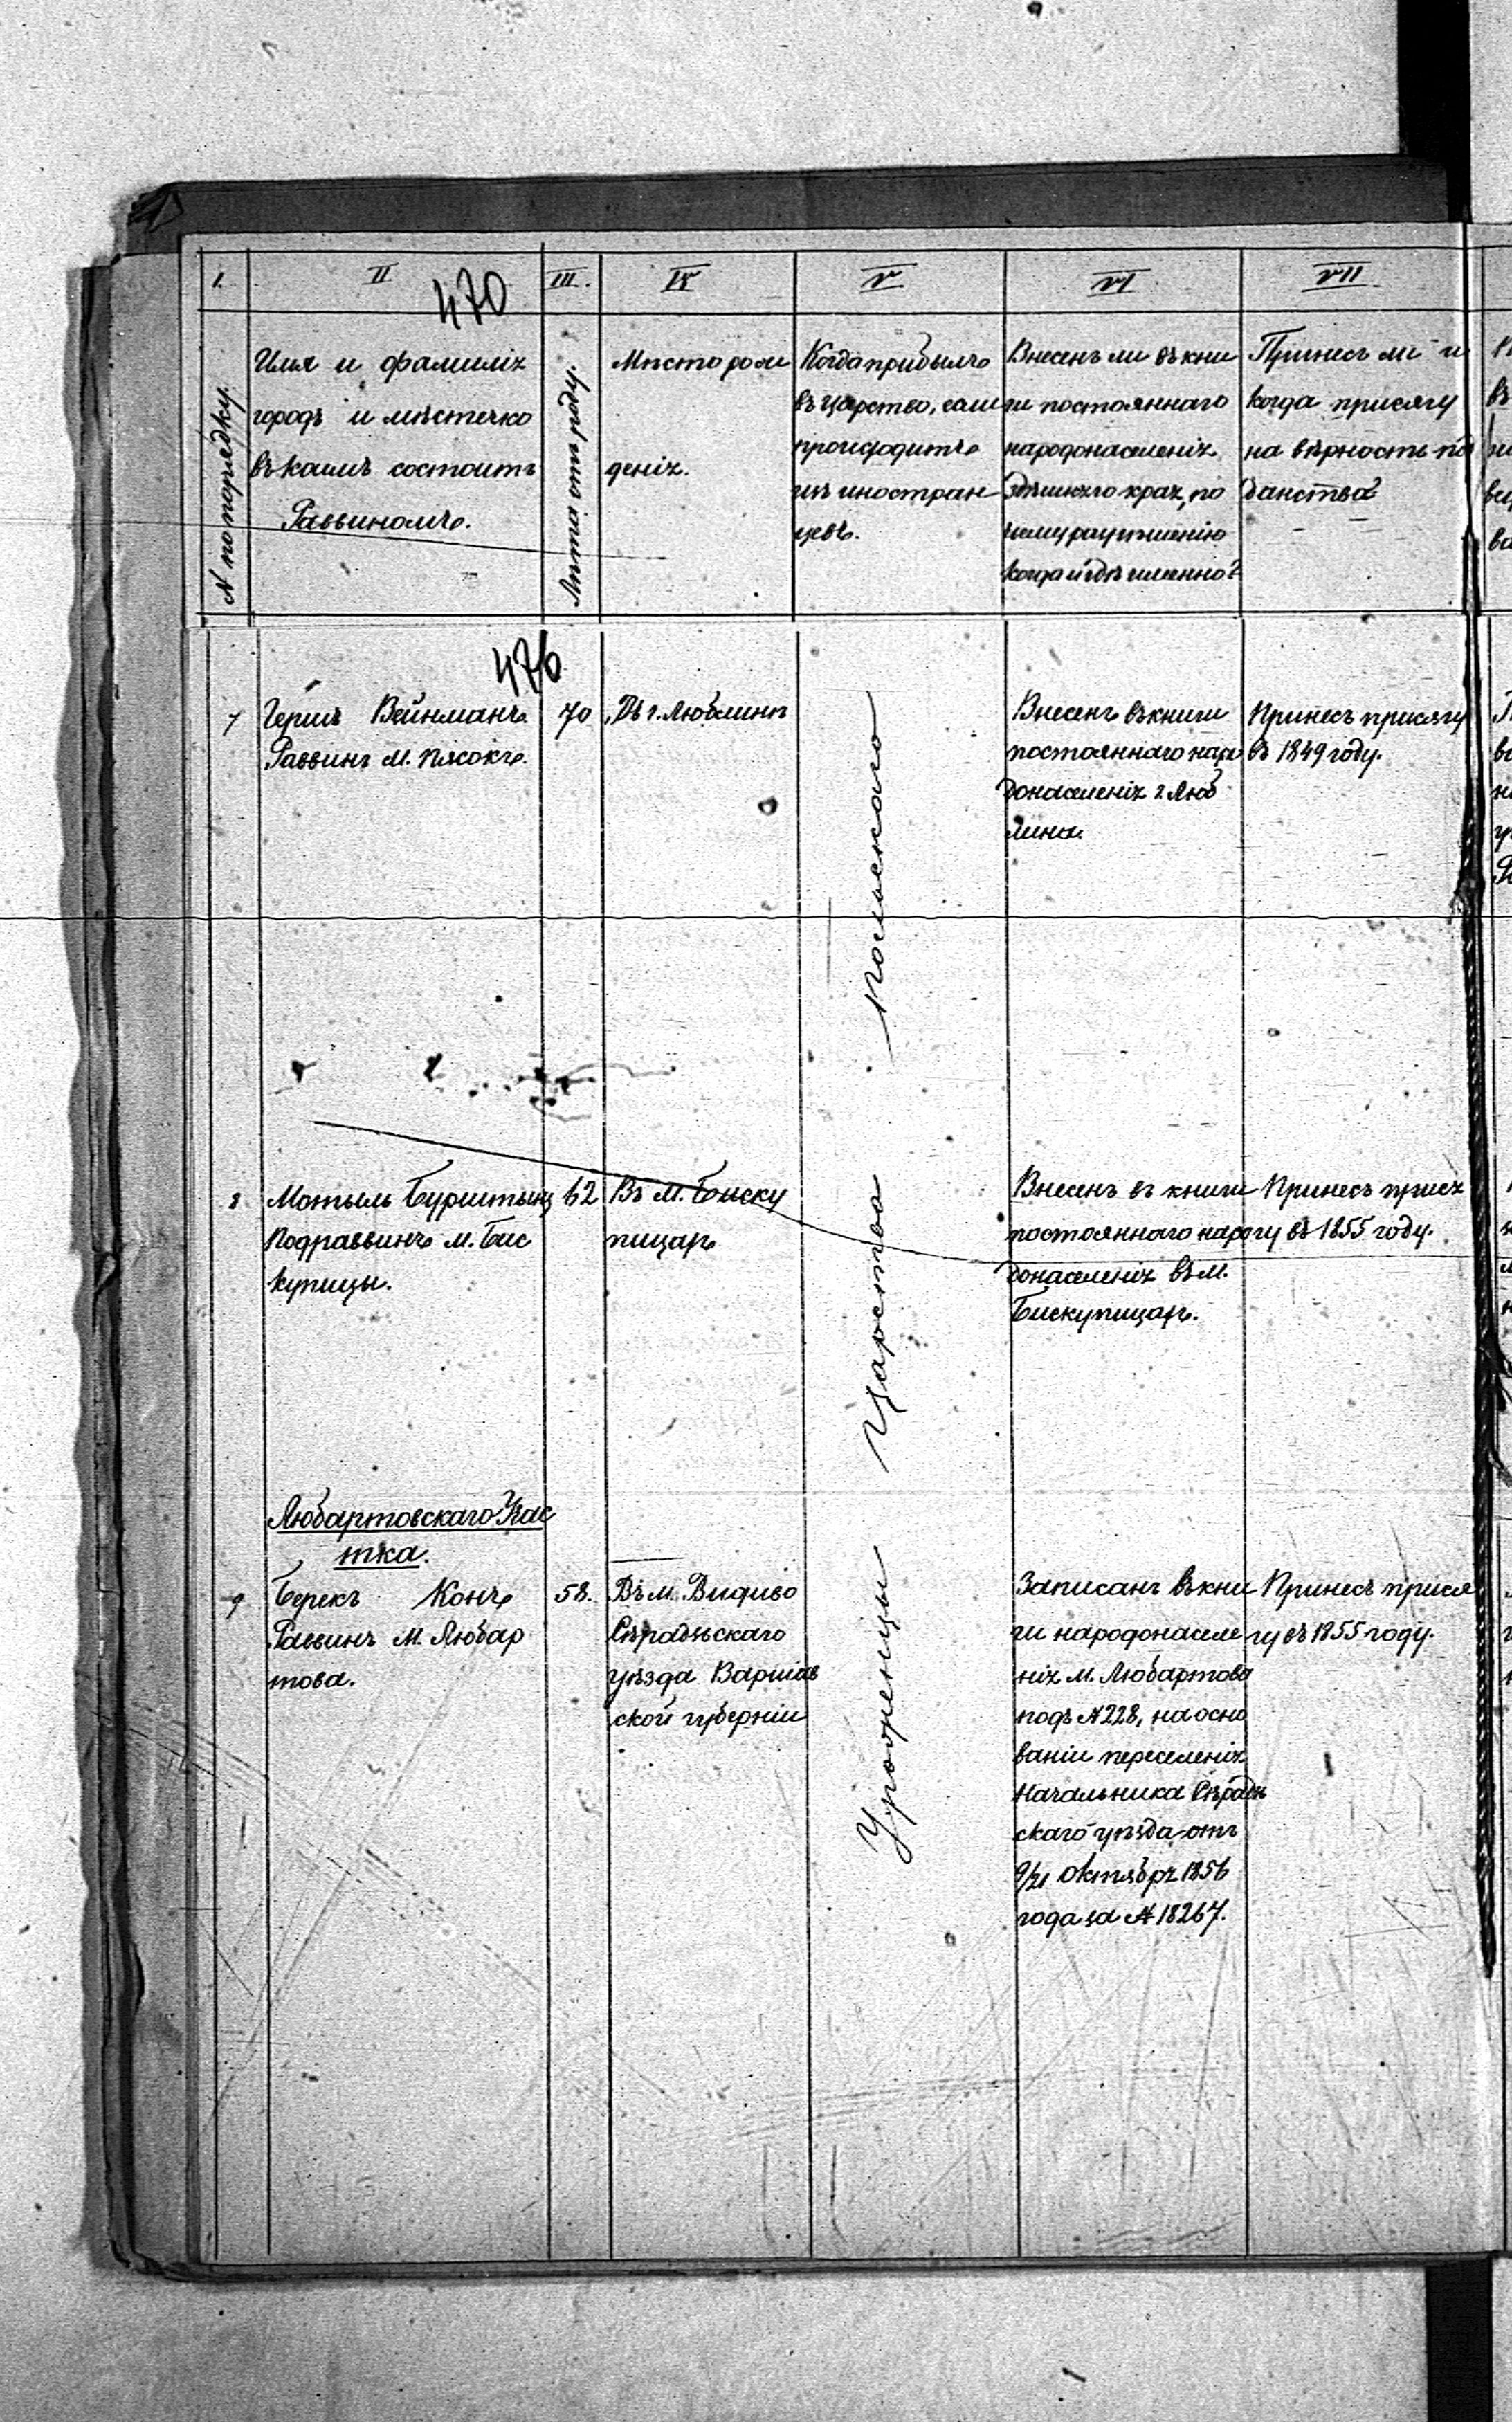 I.
II
III.
IV
V
VI
VII
470
N по порядку.
Имя и фамилія
городъ и мѣстечко
въ коемъ состоитъ
Раввиномъ.
Лѣта отъ роду.
Мѣсто рож
денія.
Когда прибылъ
въ царство, если
происходитъ
изъ иностран
цевъ.
Внесенъ ли въ кни
ги постояннаго
народонаселенія
здѣшняго края, по
чему
когда и гдѣ именно?
Принесъ ли и
когда присягу
на вѣрность под
данства
476
7
Гершъ Вейнманъ
Раввинъ м. Пясокъ.
70
Въ г. Люблинѣ
Внесенъ въ книги
постояннаго наро
донаселенія г. Люб
лина.
Принесъ присягу
въ 1849 году.
8
Мотыль Бурштынъ
Подраввинъ м. Бис
купицы.
62
Въ м. Биску
пицахъ
Внесенъ въ книги
постояннаго наро
донаселенія въ м.
Бискупицахъ.
Принесъ прися
гу въ 1855 году.
Любартовскаго Учас
тка.
9
Берекъ Конъ
Раввинъ м. Любар
това.
58.
Въ м.
Сѣрадзьскаго
уѣзда Варшав
ской губерніи
Записанъ въ кни
ги народонаселе
нія м. Любартова
подъ N 228, на осно
ваніи переселенія
Начальника Сѣрадзь
скаго уѣзда отъ
9/21 Октября 1856
года за N 18267.
Принесъ прися
гу въ 1855 году.
Уроженцы Царства Польскаго